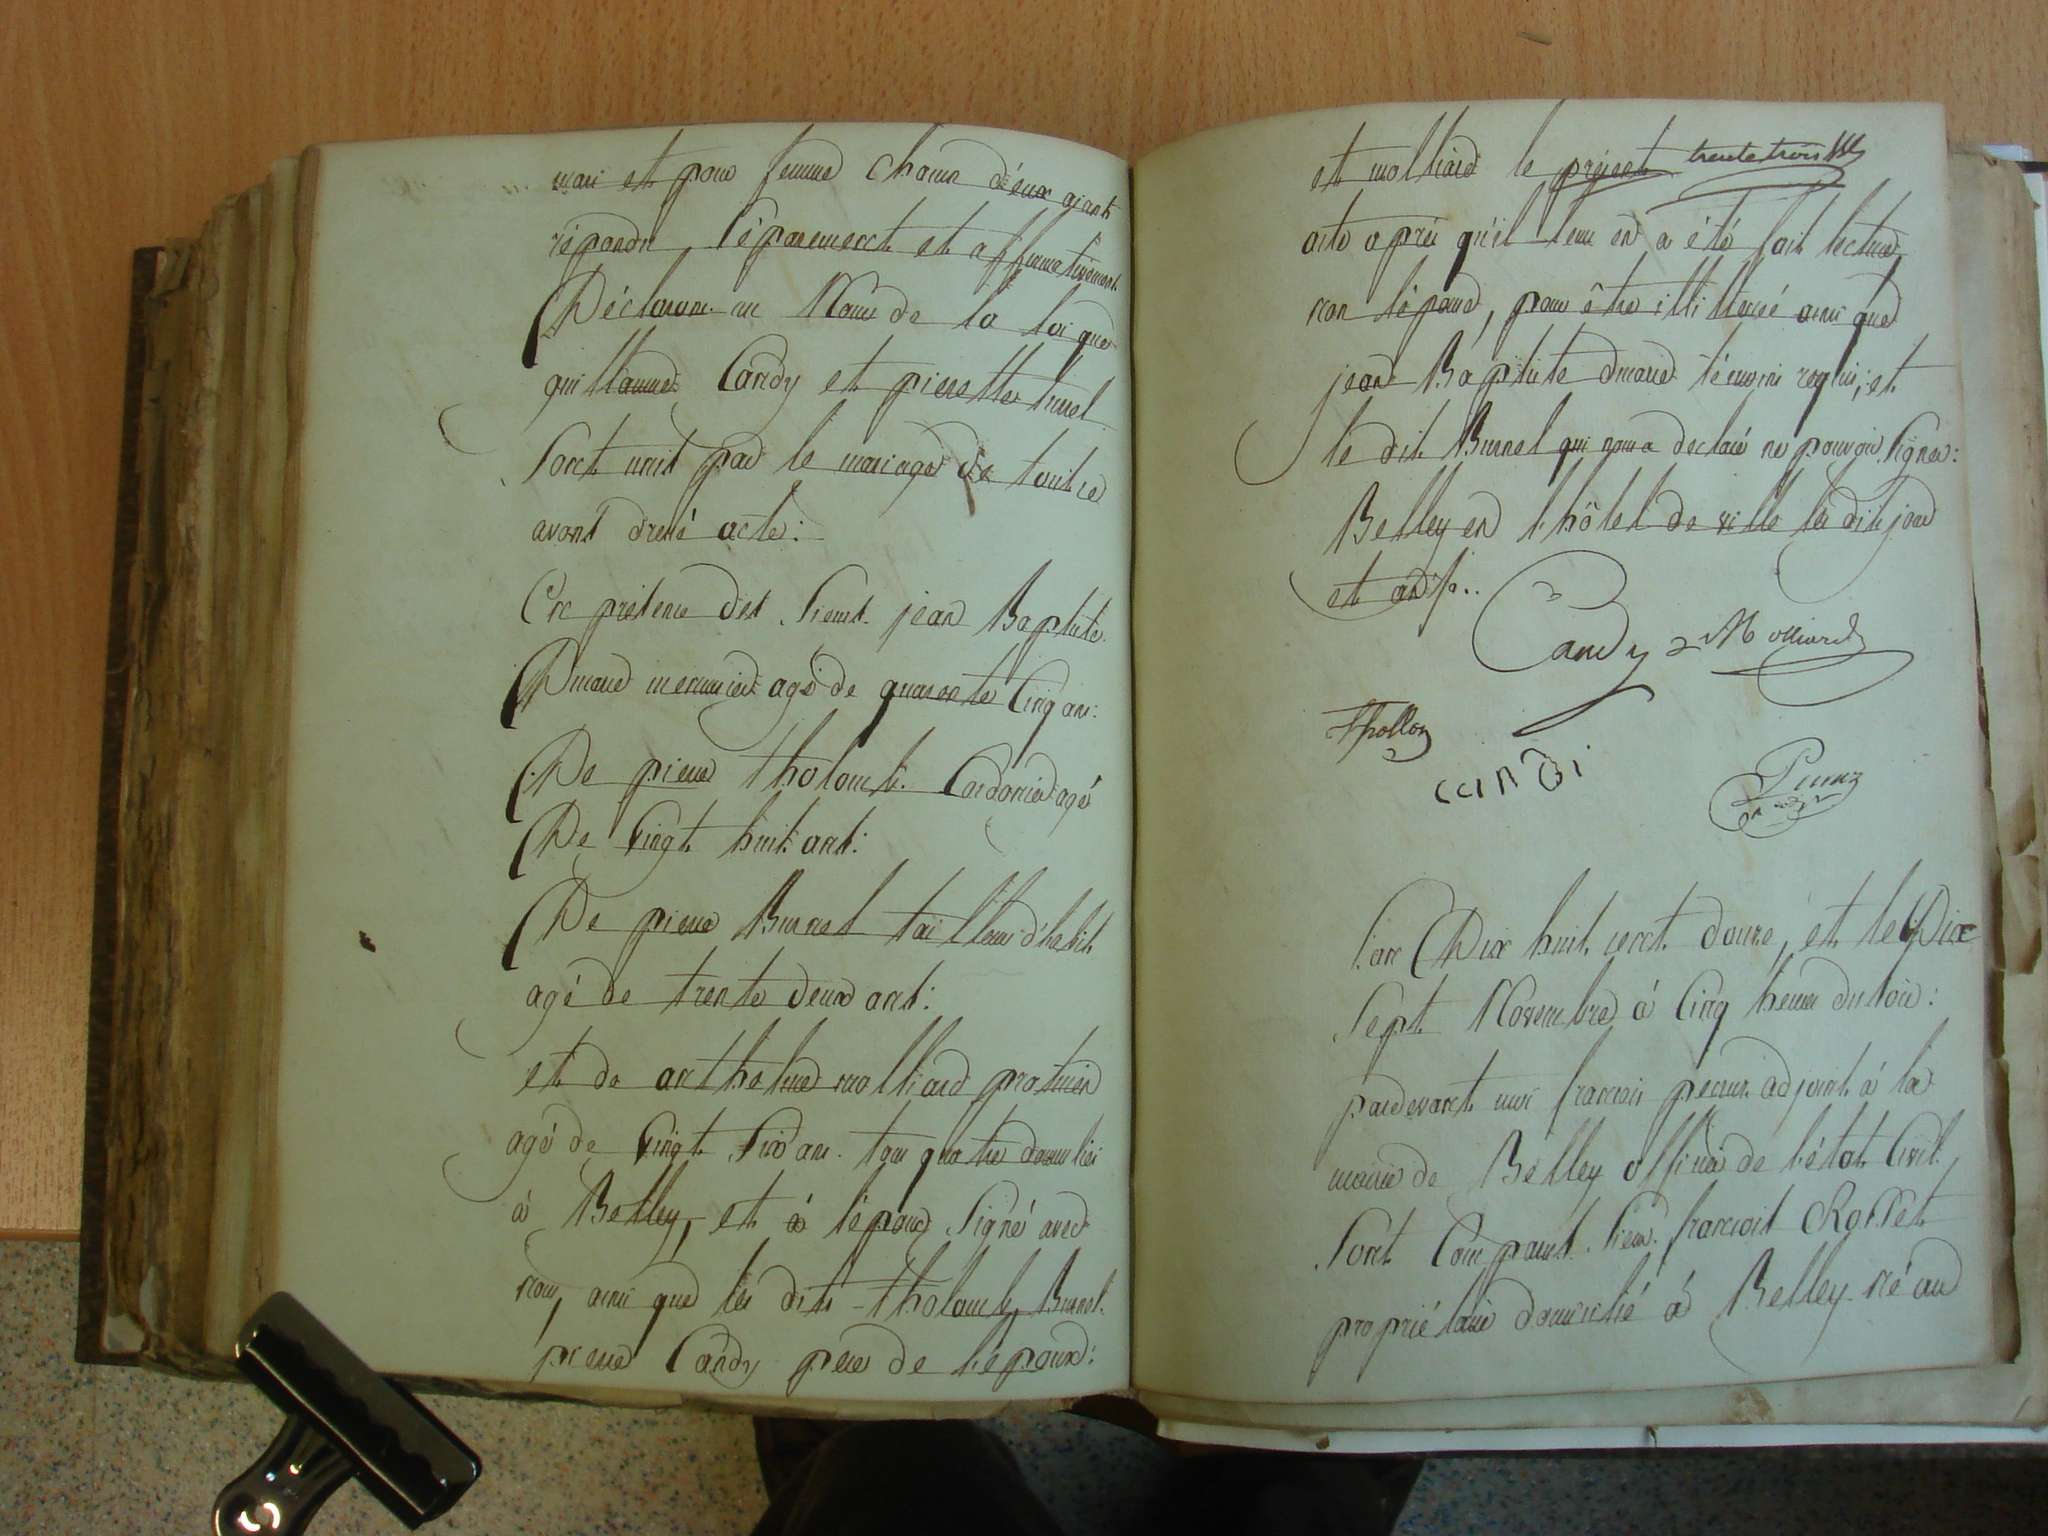 mari et pour femme chacun d'eux aiant
répondu séparement et affirmativement
Déclarons au Nom de la loi que
guillaume Candy et pierrette
sont unit par le mariage de tout ce
avont dressé acte:
En présence des sieurs jean Baptiste
menuisier agé de quarente Cinq ans:
De pierre Cordonier agé
De vingt huit ans:
De pierre Burnet tailleur d'habit
agé de trente deux ans:
et de anthelme molliard praticien
agé de vingt six ans tous quatre domiciliés
à Belley, et à l'époux signé avec
nous, ainsi que les dits Burnet
pierre Candy pere de l'époux:
et molliard le présent trente trois
acte après qu'il leur en a été fait lecture
non l'épouse, pour être illitterée ainsi que
jean Baptiste témoins requis; et
le dit Burnet qui nous a declaré ne pouvoir signer:
Belley en l'hôtel de ville les dit jour
et an
Candy Molliard
Thollon
candi
L'an Dix huit cent douze, et le Dix
sept Novembre à Cinq heures du soir:
pardevant moi francois adjoint à la
mairie de Belley officier de l'état Civil
sont Comparus sieur francois Rosset
propriétaire domicilié à Belley né au